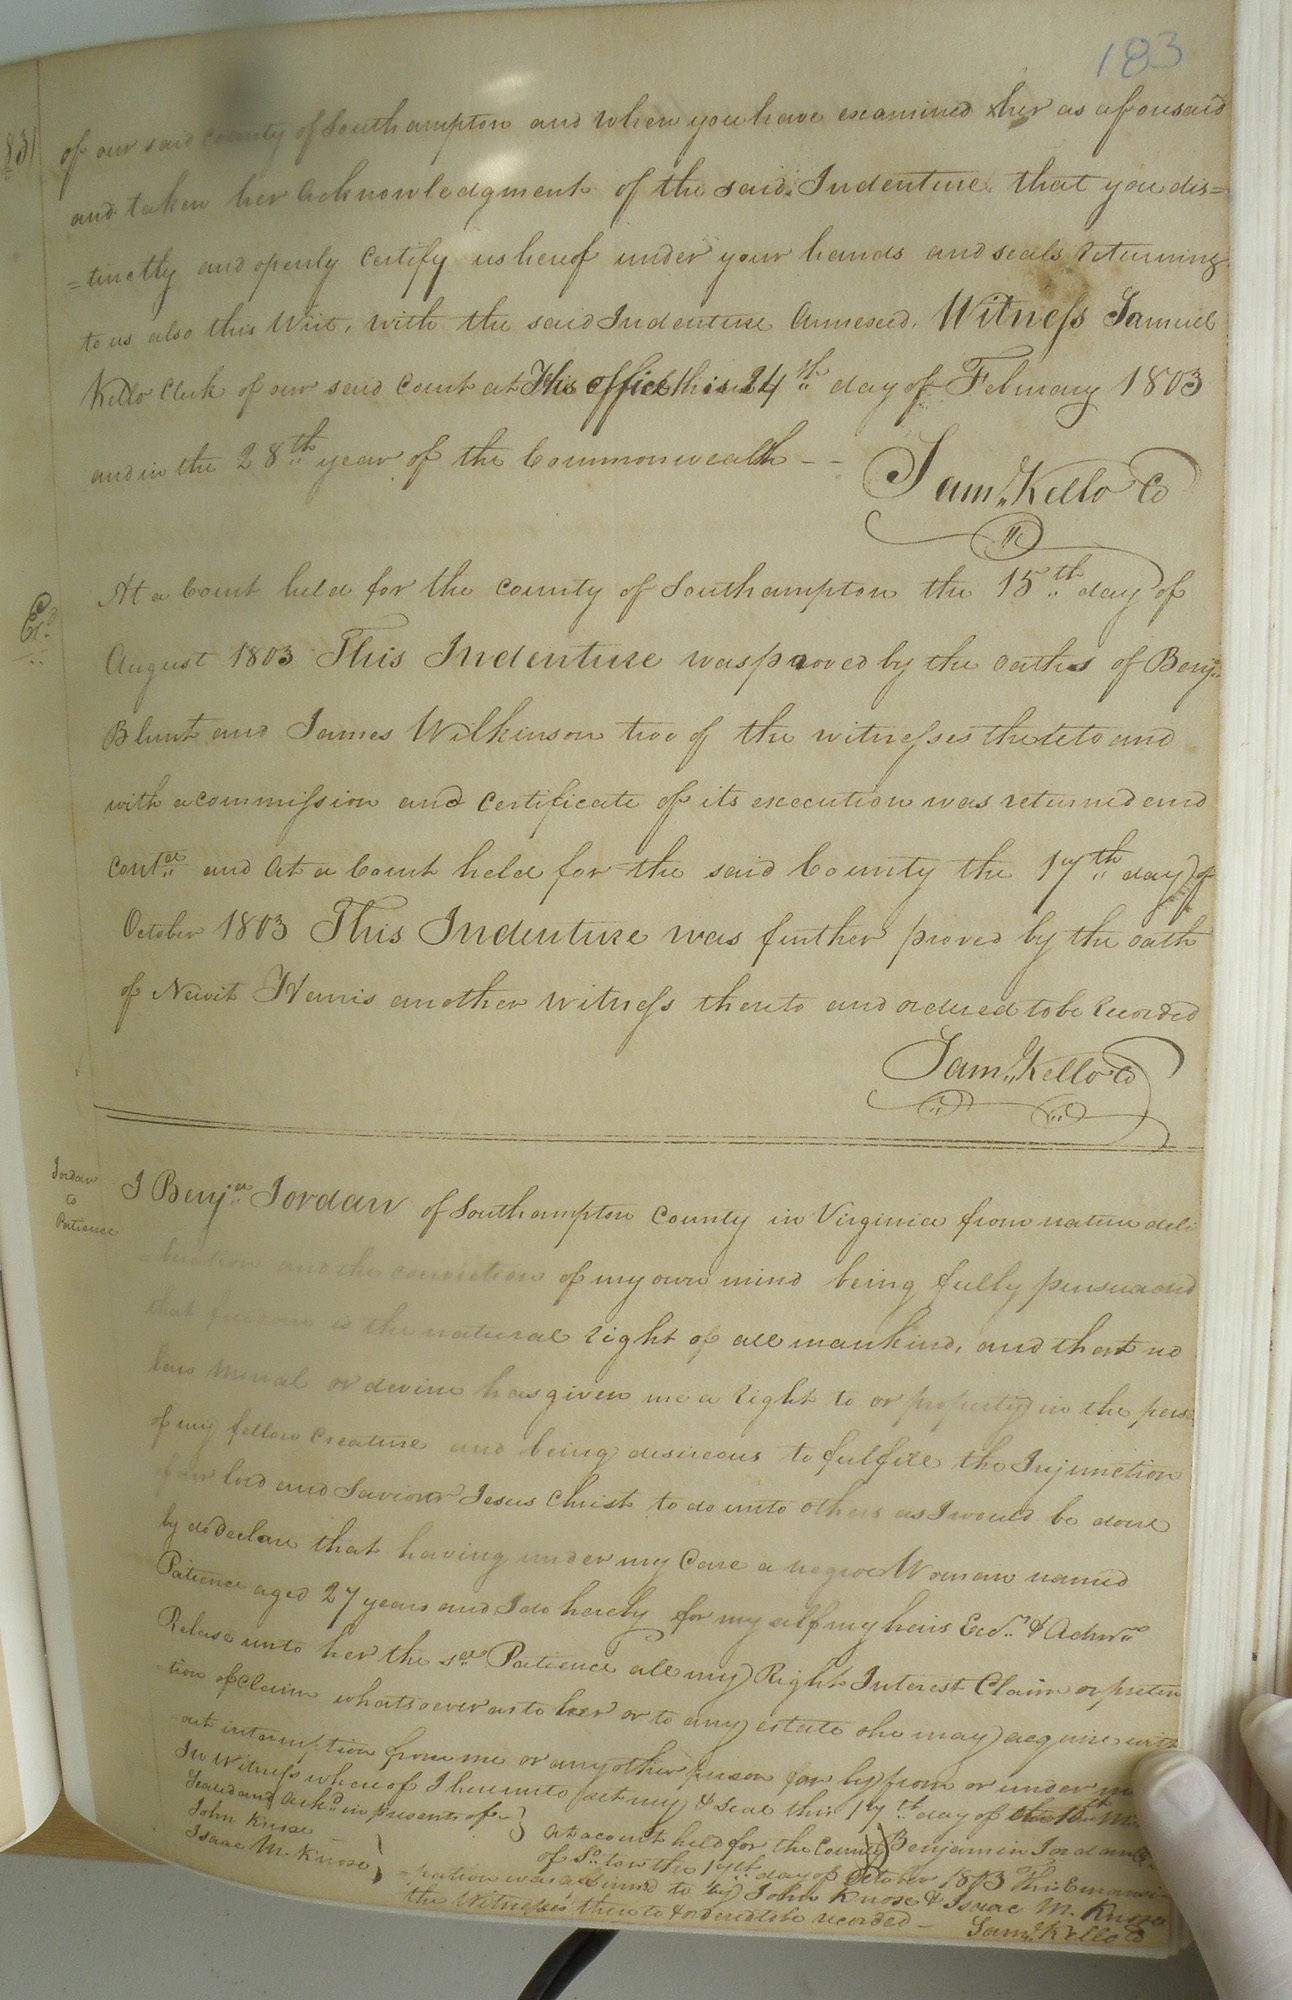 183
of our said county of Southampton and when you have examined her as aforesaid
and taken her acknowledgment of the said Indenture, that you dis=
=tinctly and openly Certify us hereof under your hands and seals returning
to us also this Writ, with the said Indenture Annexed. Witness Samuel
Kello Clerk of our said Court at His office this 24th day of February 1803
and in the 28th year of the Commonwealth --
Saml. Kello CC
Exd.
At a Court held for the county of Southampton the 15th day of
August 1803 This Indenture was proved by the oaths of Benja.
Blunt and James Wilkinson two of the witnesses thereto and
with a commission and certificate of its execution was returned and
contd. and At a Court held for the said County the 17th day of
October 1803 This Indenture was further proved by the oath
of Newit Harris another witness thereto and ordered to be recorded
Saml. Kello CC
Jordan
to
Patience
I Benja. Jordan of Southampton County in Virginia from nature deli
=beration and the conviction of my own mind being fully persuaded
that freedom is the natural right of all mankind, and that no
law moral or devine has given me a right to or property in the pers
of my fellow Creature and being desireous to fulfill the Injunction
of our lord and Saviour Jesus Christ to do unto others as I would be done
by do declare that having under my Care a negroe Woman named
Patience aged 27 years and I do hereby for my self my heirs Exrs. & Admrs.
Release unto her the sd. Patience all my Right Interest Claim or preten
tion of Claim whatsoever as to her or to any estate she may acquire with
out interruption from me or any other person for by from or under me
In Witness whereof I hereunto set my & seal this 17th day of the 10th
Seald and Ackd. in presents of
John Knose
Isaac M. Knose
Benjamin Jordan
At a court held for the County
of So.ton the 17th day of October 1803 This Emanci
=pation was to by John Knose & Isaac M. Knose
the Witnesses thereto & ordered to be recorded -
Saml. Kello CC